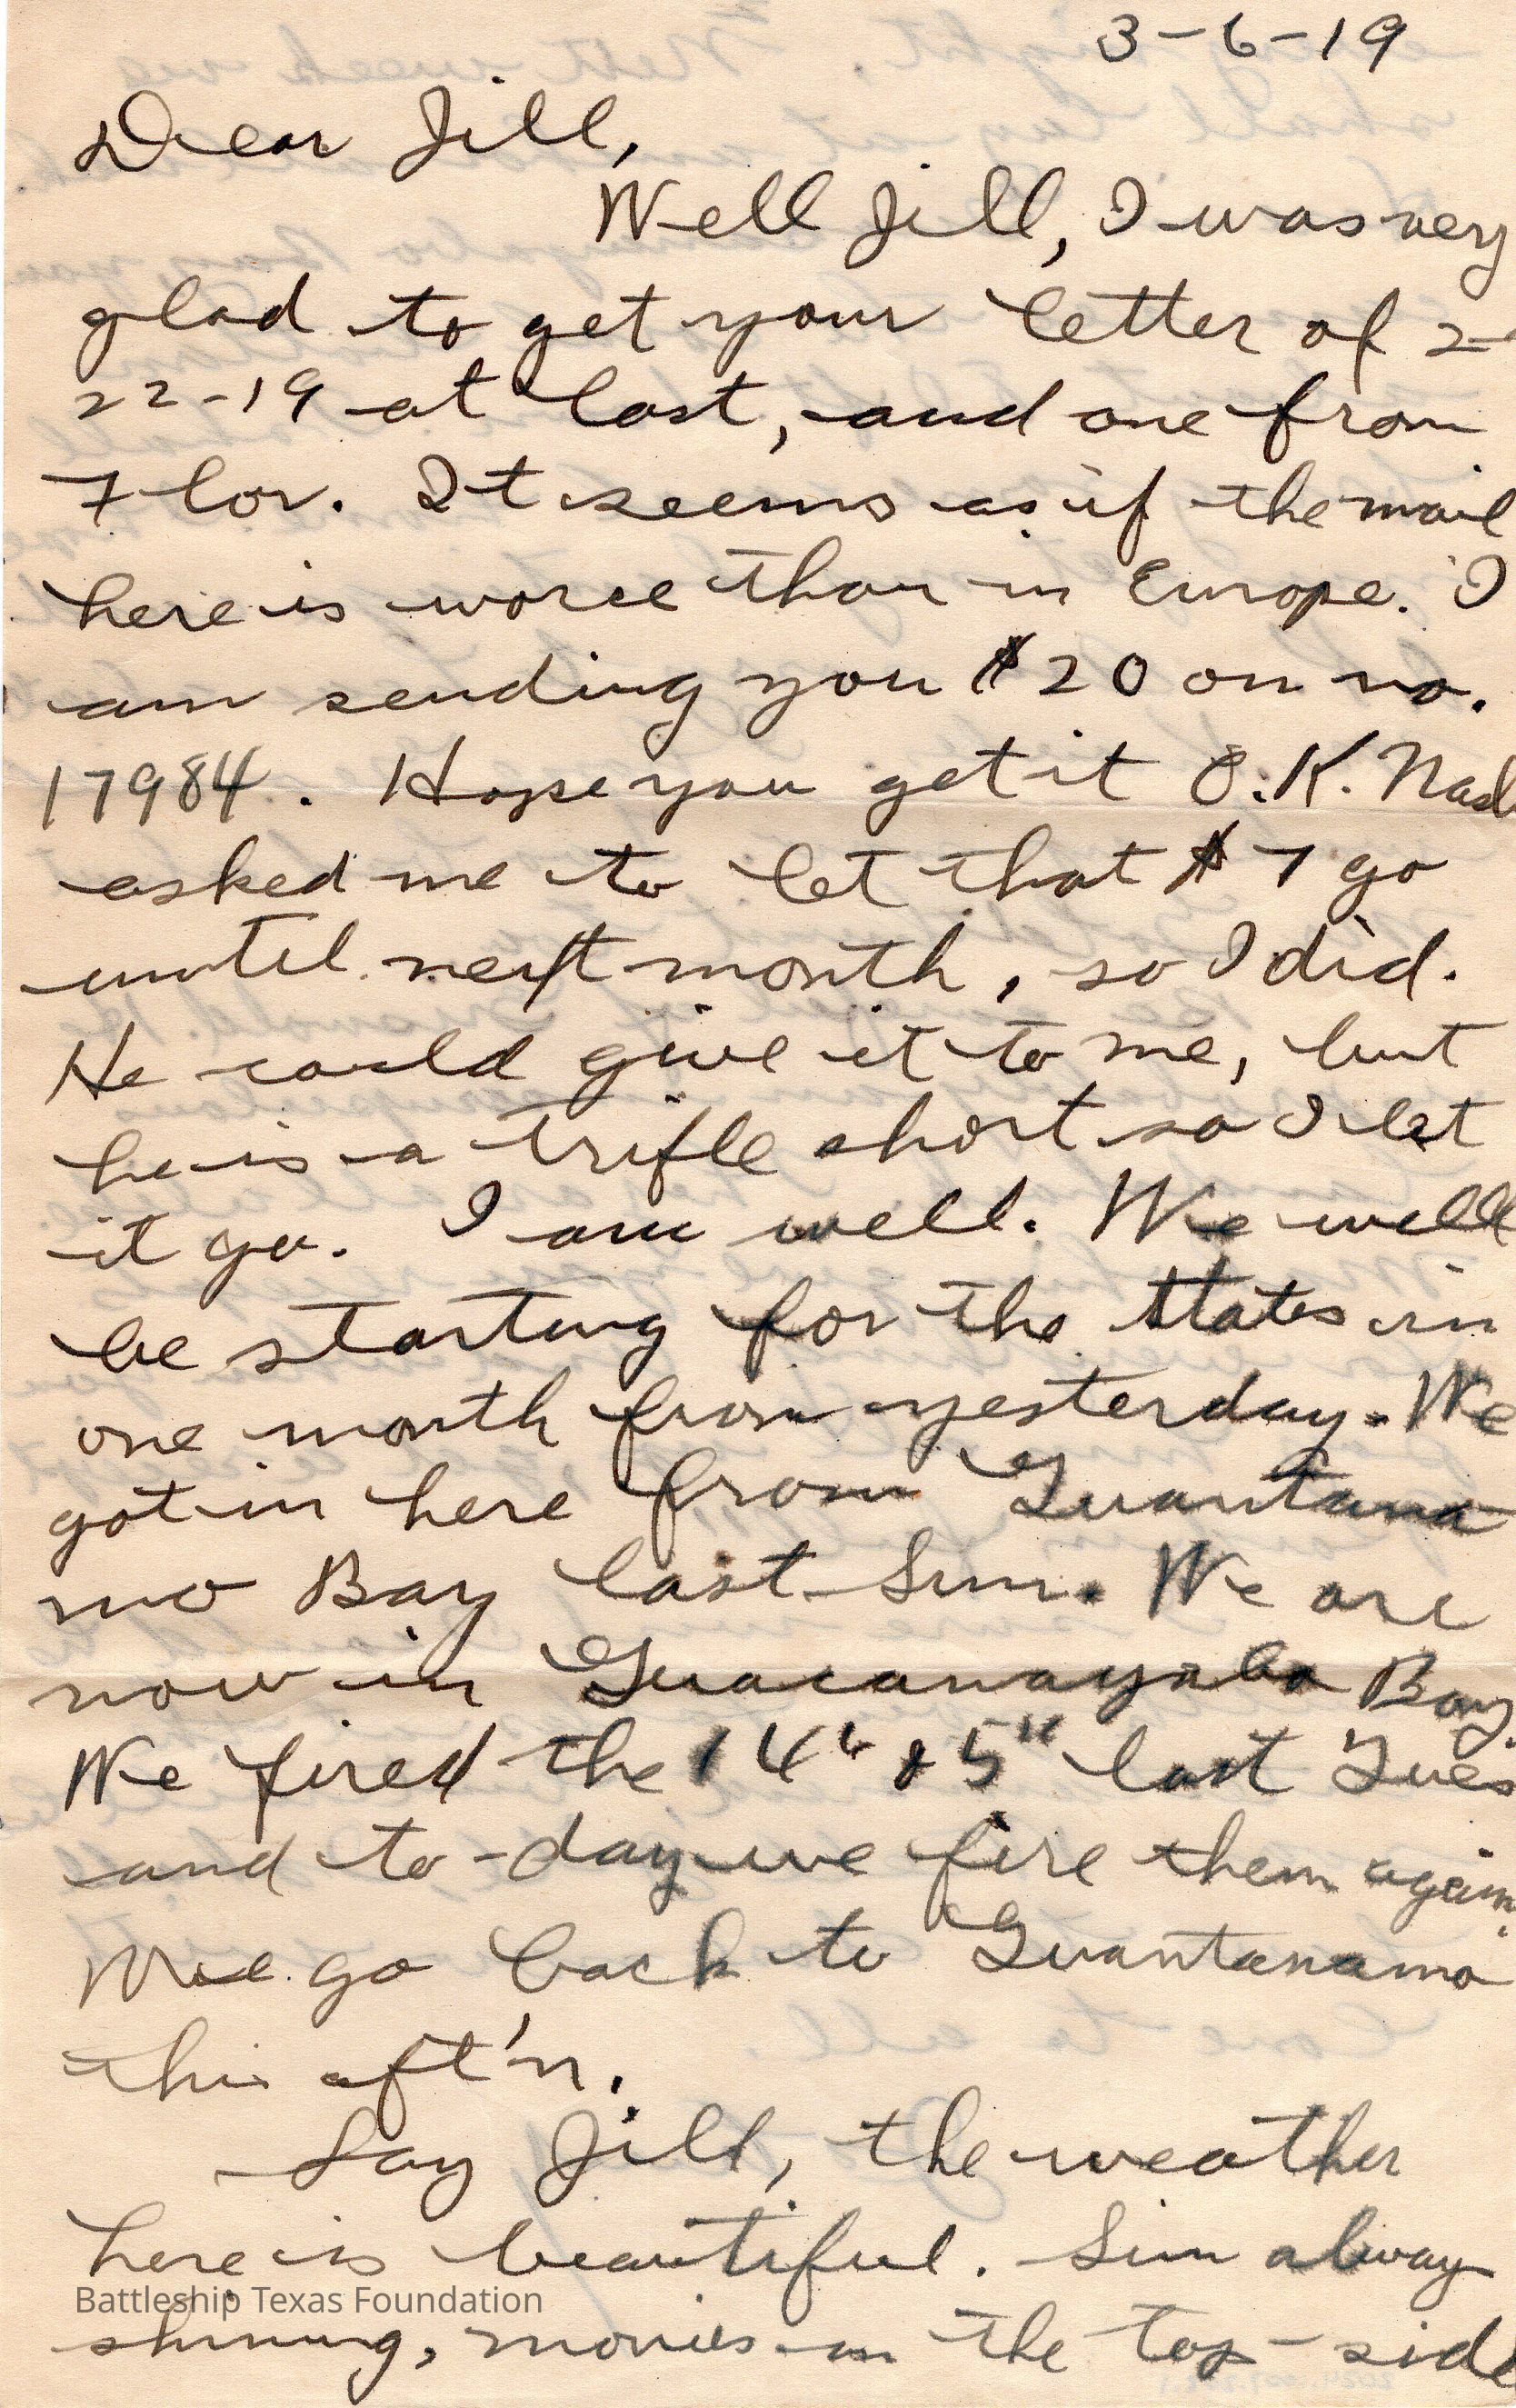 3-6-19
Dear Jill,
Well Jill, I was very
glad to get your letter of 2-
22-19 at last, and one from
Flor. It seems as if the mail
here is worce than in Europe. I
am sending you $20 on no.
17984. Hope you get it O.K. Nash
asked me to let that $7 go
until next month, so I did.
He could give it to me, but
he is a trifle short so I let
it go. I am well. We will
be starting for the States in
one month from yesterday. We
got in here from Guantana
mo Bay last Sun. We are
now in Guacanayabo Bay.
We fired the 14" & 5" last Tues
and to-day we fire them again.
We go back to Guantanamo
this aft'n.
Say Jill, the weather
here is beautiful. Sun always
shining, movies on the top-side
Battleship Texas Foundation